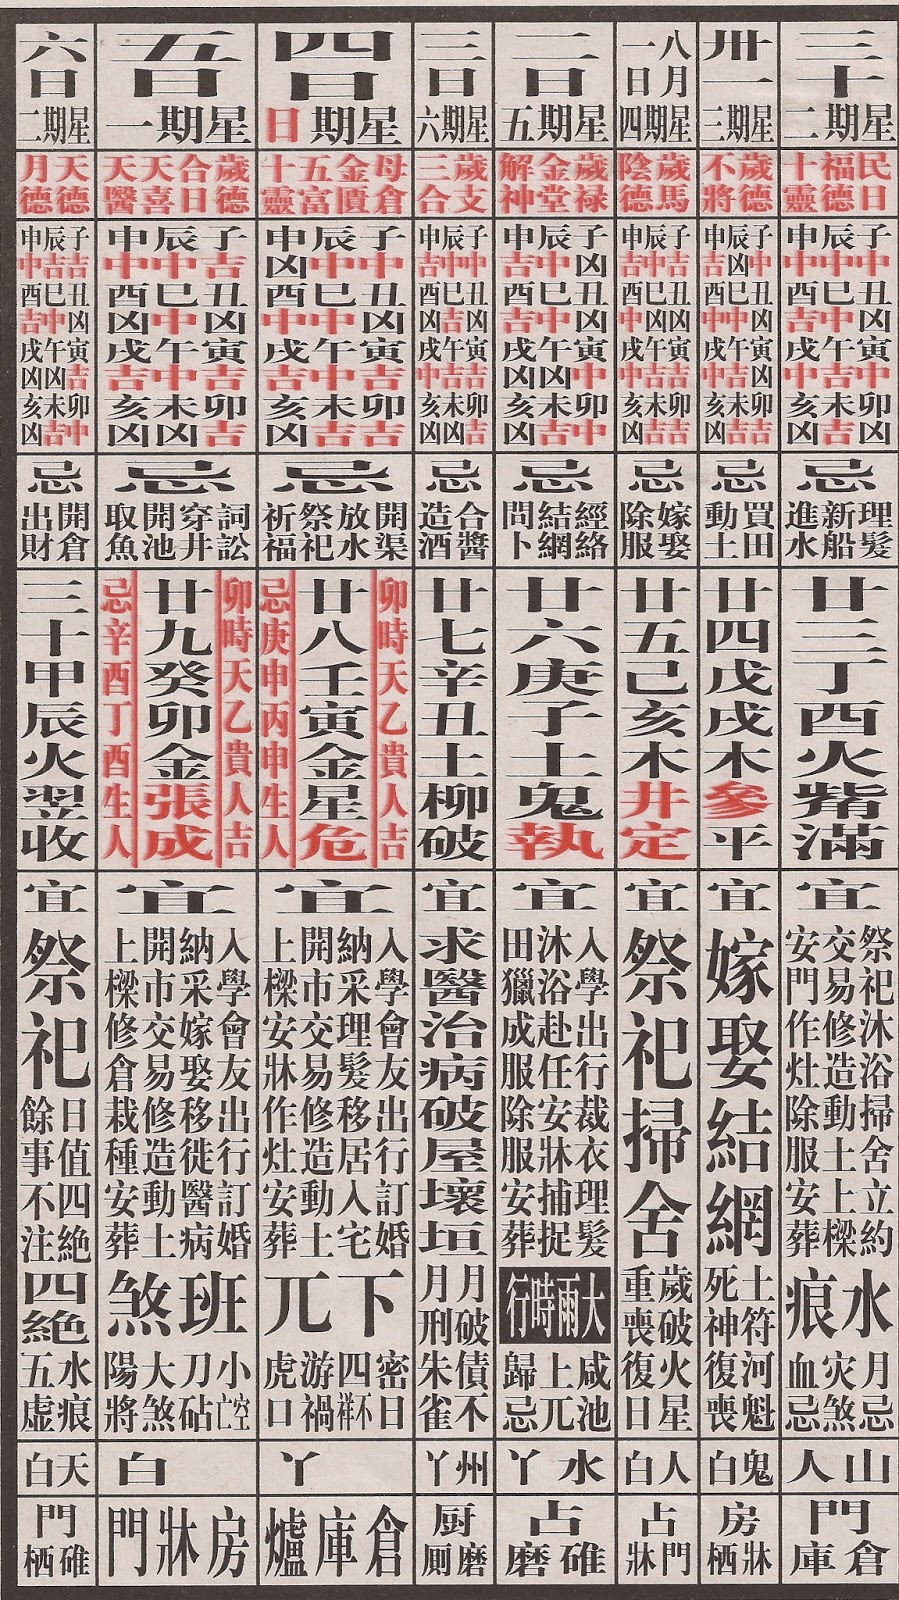 三十
星期二
民日
福德
十靈
子中丑凶寅中卯凶
辰中巳中午中未吉
申中酉吉戌吉亥凶
忌
理髮
新船
進水
廿三丁酉火觜滿
宜
祭祀沐浴掃舍立約
交易修造動土上樑
安門作灶除服安葬
水痕
月忌
灾煞
血忌
山人
門
倉庫
卅一
星期三
歲德
不將
子中丑凶寅凶卯吉
辰凶巳中午吉未吉
申吉酉中戌中亥凶
忌
買田
動土
廿四戊戌木參平
宜
嫁娶結網
土符
死神
河魁
復喪
鬼白
房
牀栖
八月一日
星期四
歲馬
陰德
子吉丑凶寅吉卯吉
辰中巳凶午吉未吉
申吉酉中戌中亥凶
忌
嫁娶
除服
廿五己亥木井定
宜
祭祀掃舍
歲破
重喪
火星
復日
人白
占
門牀
二日
星期五
歲祿
金堂
解神
子凶丑凶寅中卯中
辰中巳中午凶未吉
申吉酉吉戌凶亥凶
忌
經絡
結網
問卜
廿六庚子土鬼執
宜
入學出行裁衣理髮
沐浴赴任安牀捕捉
田獵成服除服安葬
大雨時行
咸池
上兀
歸忌
水丫
占
碓磨
三日
星期六
歲支
三合
子中丑凶寅吉卯吉
辰中巳吉午吉未凶
申吉酉凶戌中亥凶
忌
合醬
造酒
廿七辛丑土柳破
宜
求醫治病破屋壞垣
月破
月刑
債不
朱雀
州丫
厨
磨厠
四日
星期日
母倉
金匱
五富
十靈
子中丑凶寅吉卯吉
辰中巳中午中未吉
申凶酉中戌吉亥凶
忌
開渠
放水
祭祀
祈福
卯時天乙貴人吉
廿八壬寅金星危
忌庚申丙申生人
宜
入學會友出行訂婚
納采理髮移居入宅
開市交易修造動土
上樑安牀作灶安葬
下兀
密日
四不祥
游禍
虎口
丫
倉庫爐
五日
星期一
歲德
合日
天喜
天醫
子吉丑凶寅吉卯吉
辰中巳中午中未凶
申中酉凶戌吉亥凶
忌
詞訟
穿井
開池
取魚
卯時天乙貴人吉
廿九癸卯金張成
忌辛酉丁酉生人
宜
入學會友出行訂婚
納采嫁娶移徙醫病
開市交易修造動土
上樑修倉栽種安葬
班煞
小空亡
刀砧
大煞
陽將
白
房牀門
六日
星期二
天德
月德
子吉丑凶寅吉卯中
辰吉巳中午凶未吉
申中酉吉戌凶亥凶
忌
開倉
出財
三十甲辰火翌收
宜
祭祀
日值四絶
餘事不注
四絶
水痕
五虛
天白
門
碓栖